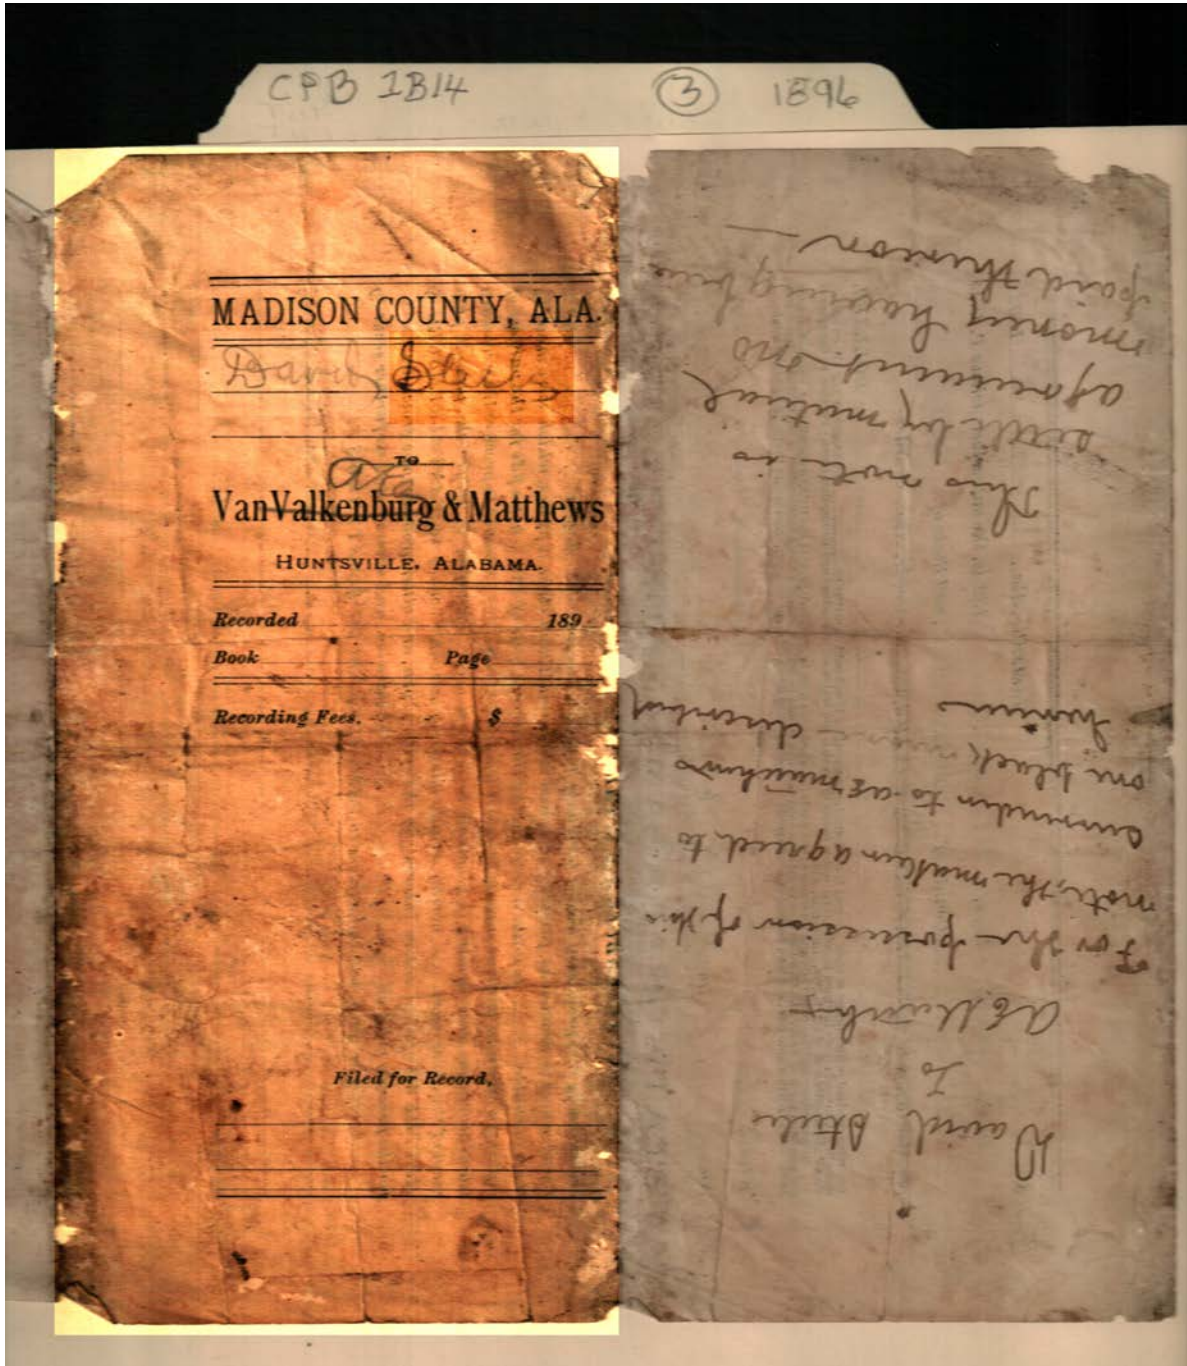 CPB 2B14 ③ 1896
MADISON COUNTY, ALA.
David Steele
TO
A E
Van Valkenburg & Matthews
HUNTSVILLE, ALABAMA.
Recorded 189
Book Page
Recording Fees. $
Filed for Record,
David Steele
To
A E Matthews
For the possession of this
note, the maker agreed to
surrender to AE Matthews
one black mare described
herein
This note is
settle by mutual
agreement no
money having been
paid thereon —